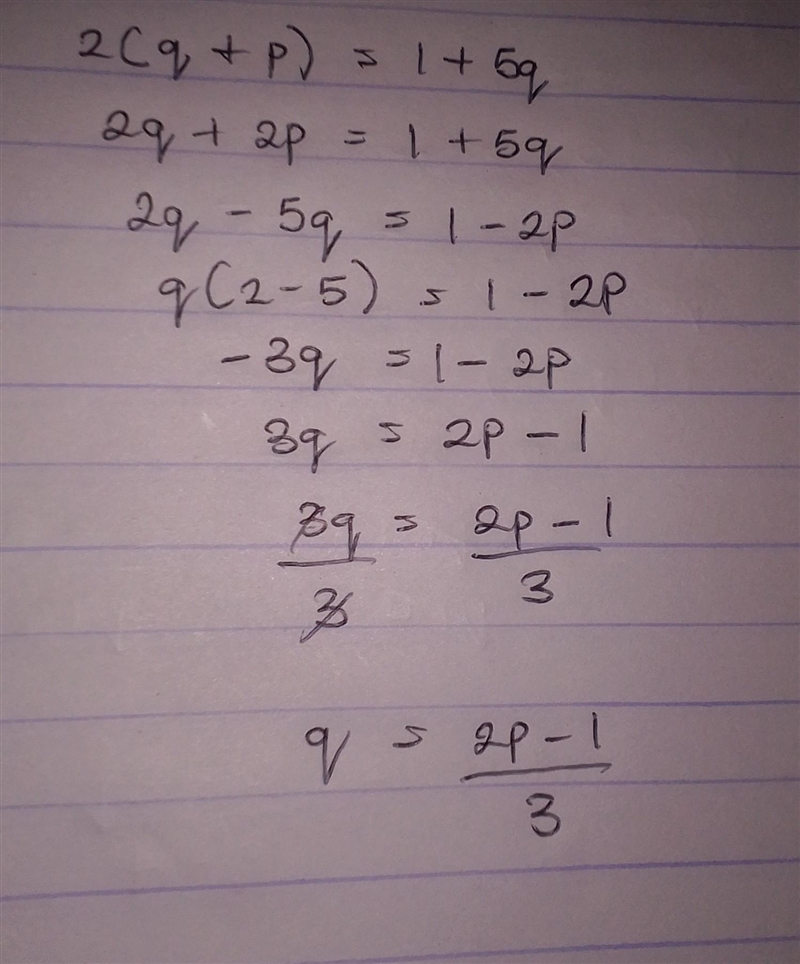 2(q + p) = 1 + 5q
2q + 2p = 1 + 5q
2q - 5q = 1 - 2p
q(2 - 5) = 1 - 2p
-3q = 1 - 2p
3q = 2p - 1
3q/3 = 2p - 1/3
q = 2p - 1/3